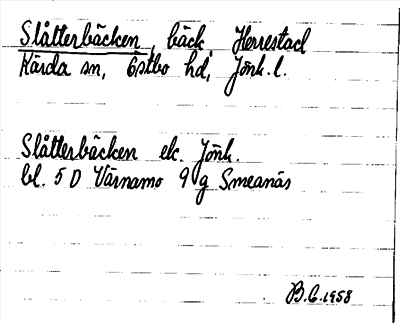 Slåtterbäcken, bäck, Herrestad
Kärda sn, Östbo hd, Jönk. l.
Slåtterbäcken ek. Jönk.
bl. 5 D Värnamo 9 g Smeanäs
B.G. 1958